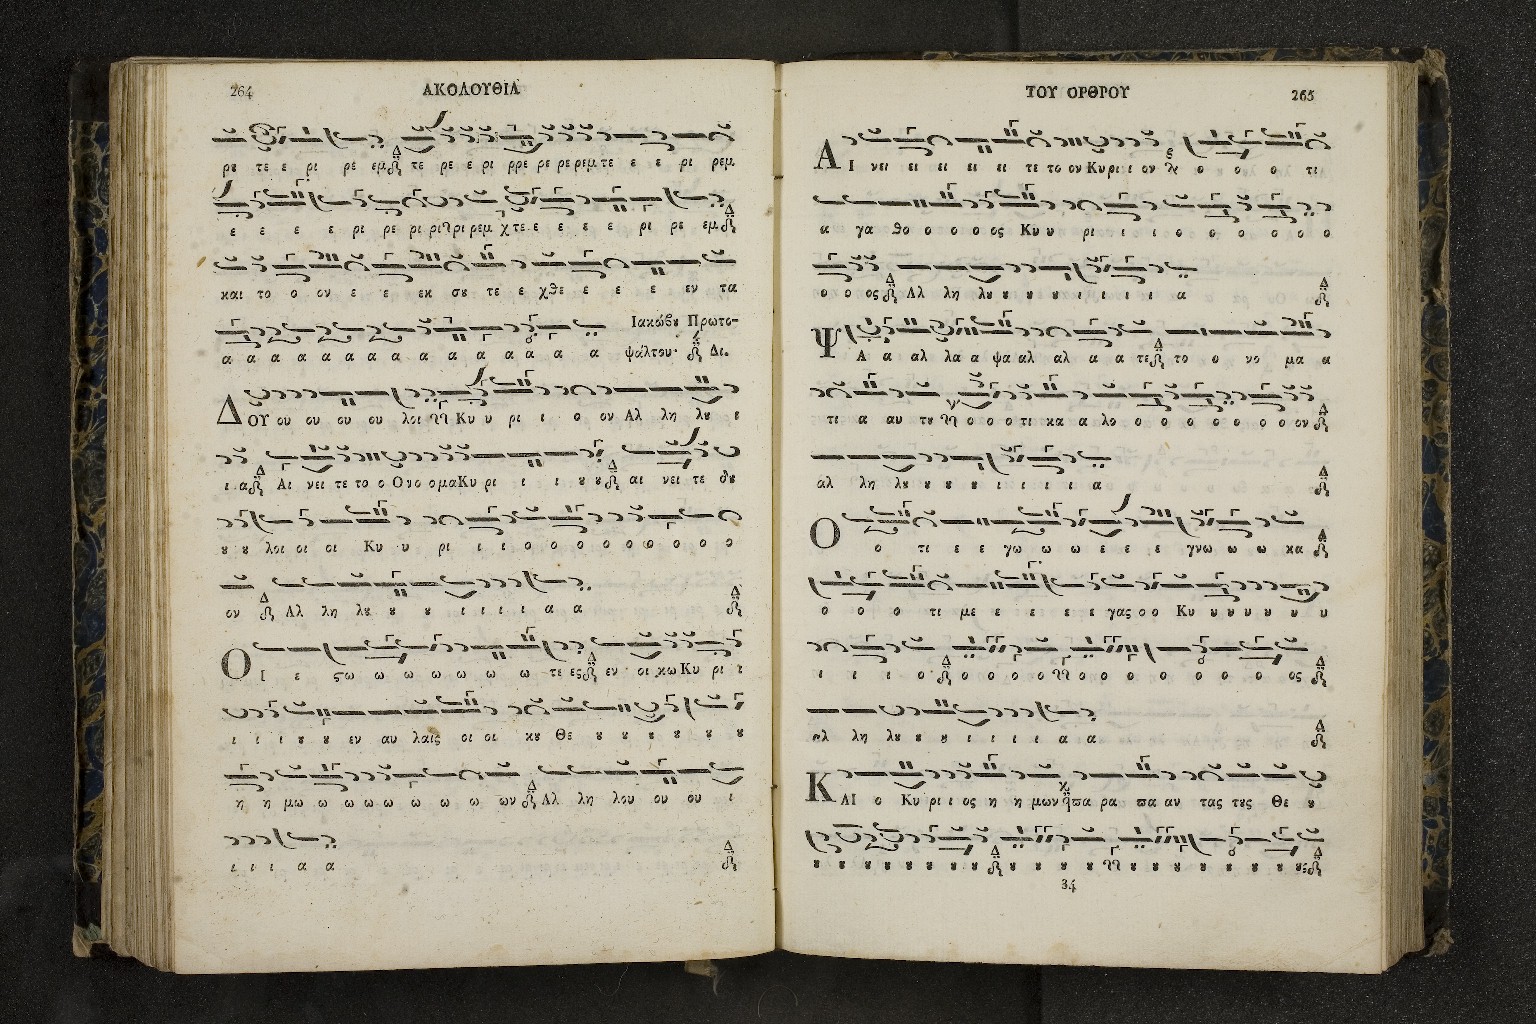 264
ΑΚΟΛΟΥΘΙΑ
ρυ τε ε ρι ρε εμ τε ρε ε ρι ρρε ρε ρε ρεμ τε ε ε ρι ρεμ
ε ε ε ε ρι ρε ρι ρι ρι ρεμ χ τε ε ε ε ε ρι ρε εμ
και το ο ον ε ε εκ σου τε ε χθε ε ε ε εν τα
α α α α α α α α α α α α α α α α Ιακώβȣ Πρωτο-
ψάλτου· Δι.
ΔΟΥ ου ου ου ου λοι Κυ υ ρι ι ο ον Αλ λη λȣ ȣ
ι α Αι νει τε το ο Ονο ομα Κυ ρι ι ι ȣ ȣ αι νει τε δȣ
ȣ ȣ λοι οι οι Κυ υ ρι ι ι ο ο ο ο ο ο ο ο ο
ον Αλ λη λȣ ȣ ȣ ι ι ι ι α α
ΟΙ ε ςω ω ω ω ω ω ω τε ες εν οι κω Κυ ρι ι
ι ι ι ȣ ȣ εν αυ λαις οι οι κȣ Θε ȣ ȣ ȣ ȣ ȣ ȣ
η η μω ω ω ω ω ω ω ω ων Αλ λη λου ου ου ι
ι ι ι α α
ΤΟΥ ΟΡΘΡΟΥ
265
ΑΙ νει ει ει ει ει τε το ον Κυ ρι ι ον ο ο ο ο τι
α γα θο ο ο ο ος Κυ υ ρι ι ι ο ο ο ο ο ο
ο ο ος Αλ λη λȣ ȣ ȣ ȣ ι ι ι ι α
Ψ Α α αλ λα α ψα αλ αλ α α τε το ο νο μα α
τι α αυ τȣ ο ο ο τι κα α λο ο ο ο ο ο ο ον
αλ λη λȣ ȣ ȣ ȣ ι ι ι ι α
Ο ο τι ε ε γω ω ω ε ε ε γνω ω ω κα
ο ο ο τι με ε ε ε ε ε γας ο ο Κυ υ υ υ υ υ υ
ι ι ι ο ο ο ο ο ο ο ο ο ο ο ο ος
αλ λη λȣ ȣ ȣ ι ι ι ι α α
ΚΑΙ ο Κυ ρι ι ος η η μων πα ρα πα αν τας τȣς Θε ȣ
ȣ ȣ ȣ ȣ ȣ ȣ ȣ ȣ ȣ ȣ ȣ ȣ ȣ ȣ ȣ ȣ ȣ ȣ ȣ ȣ ȣς
34